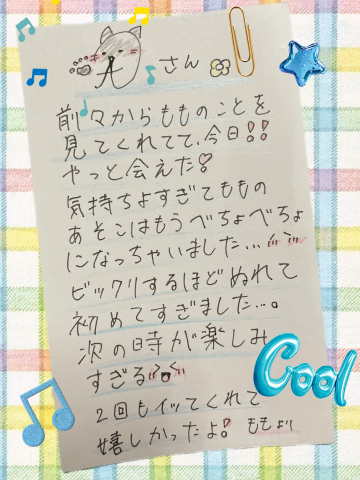 Aさん
前々からもものことを
見てくれてて、今日!!
やっと会えた♡
気持ちよすぎてももの
あそこはもうべちょべちょ
になっちゃいました...
ビックリするほどぬれて
初めてすぎました...。
次の時が楽しみ
すぎる
2回もイッてくれて
嬉しかったよ! ももより
Cool